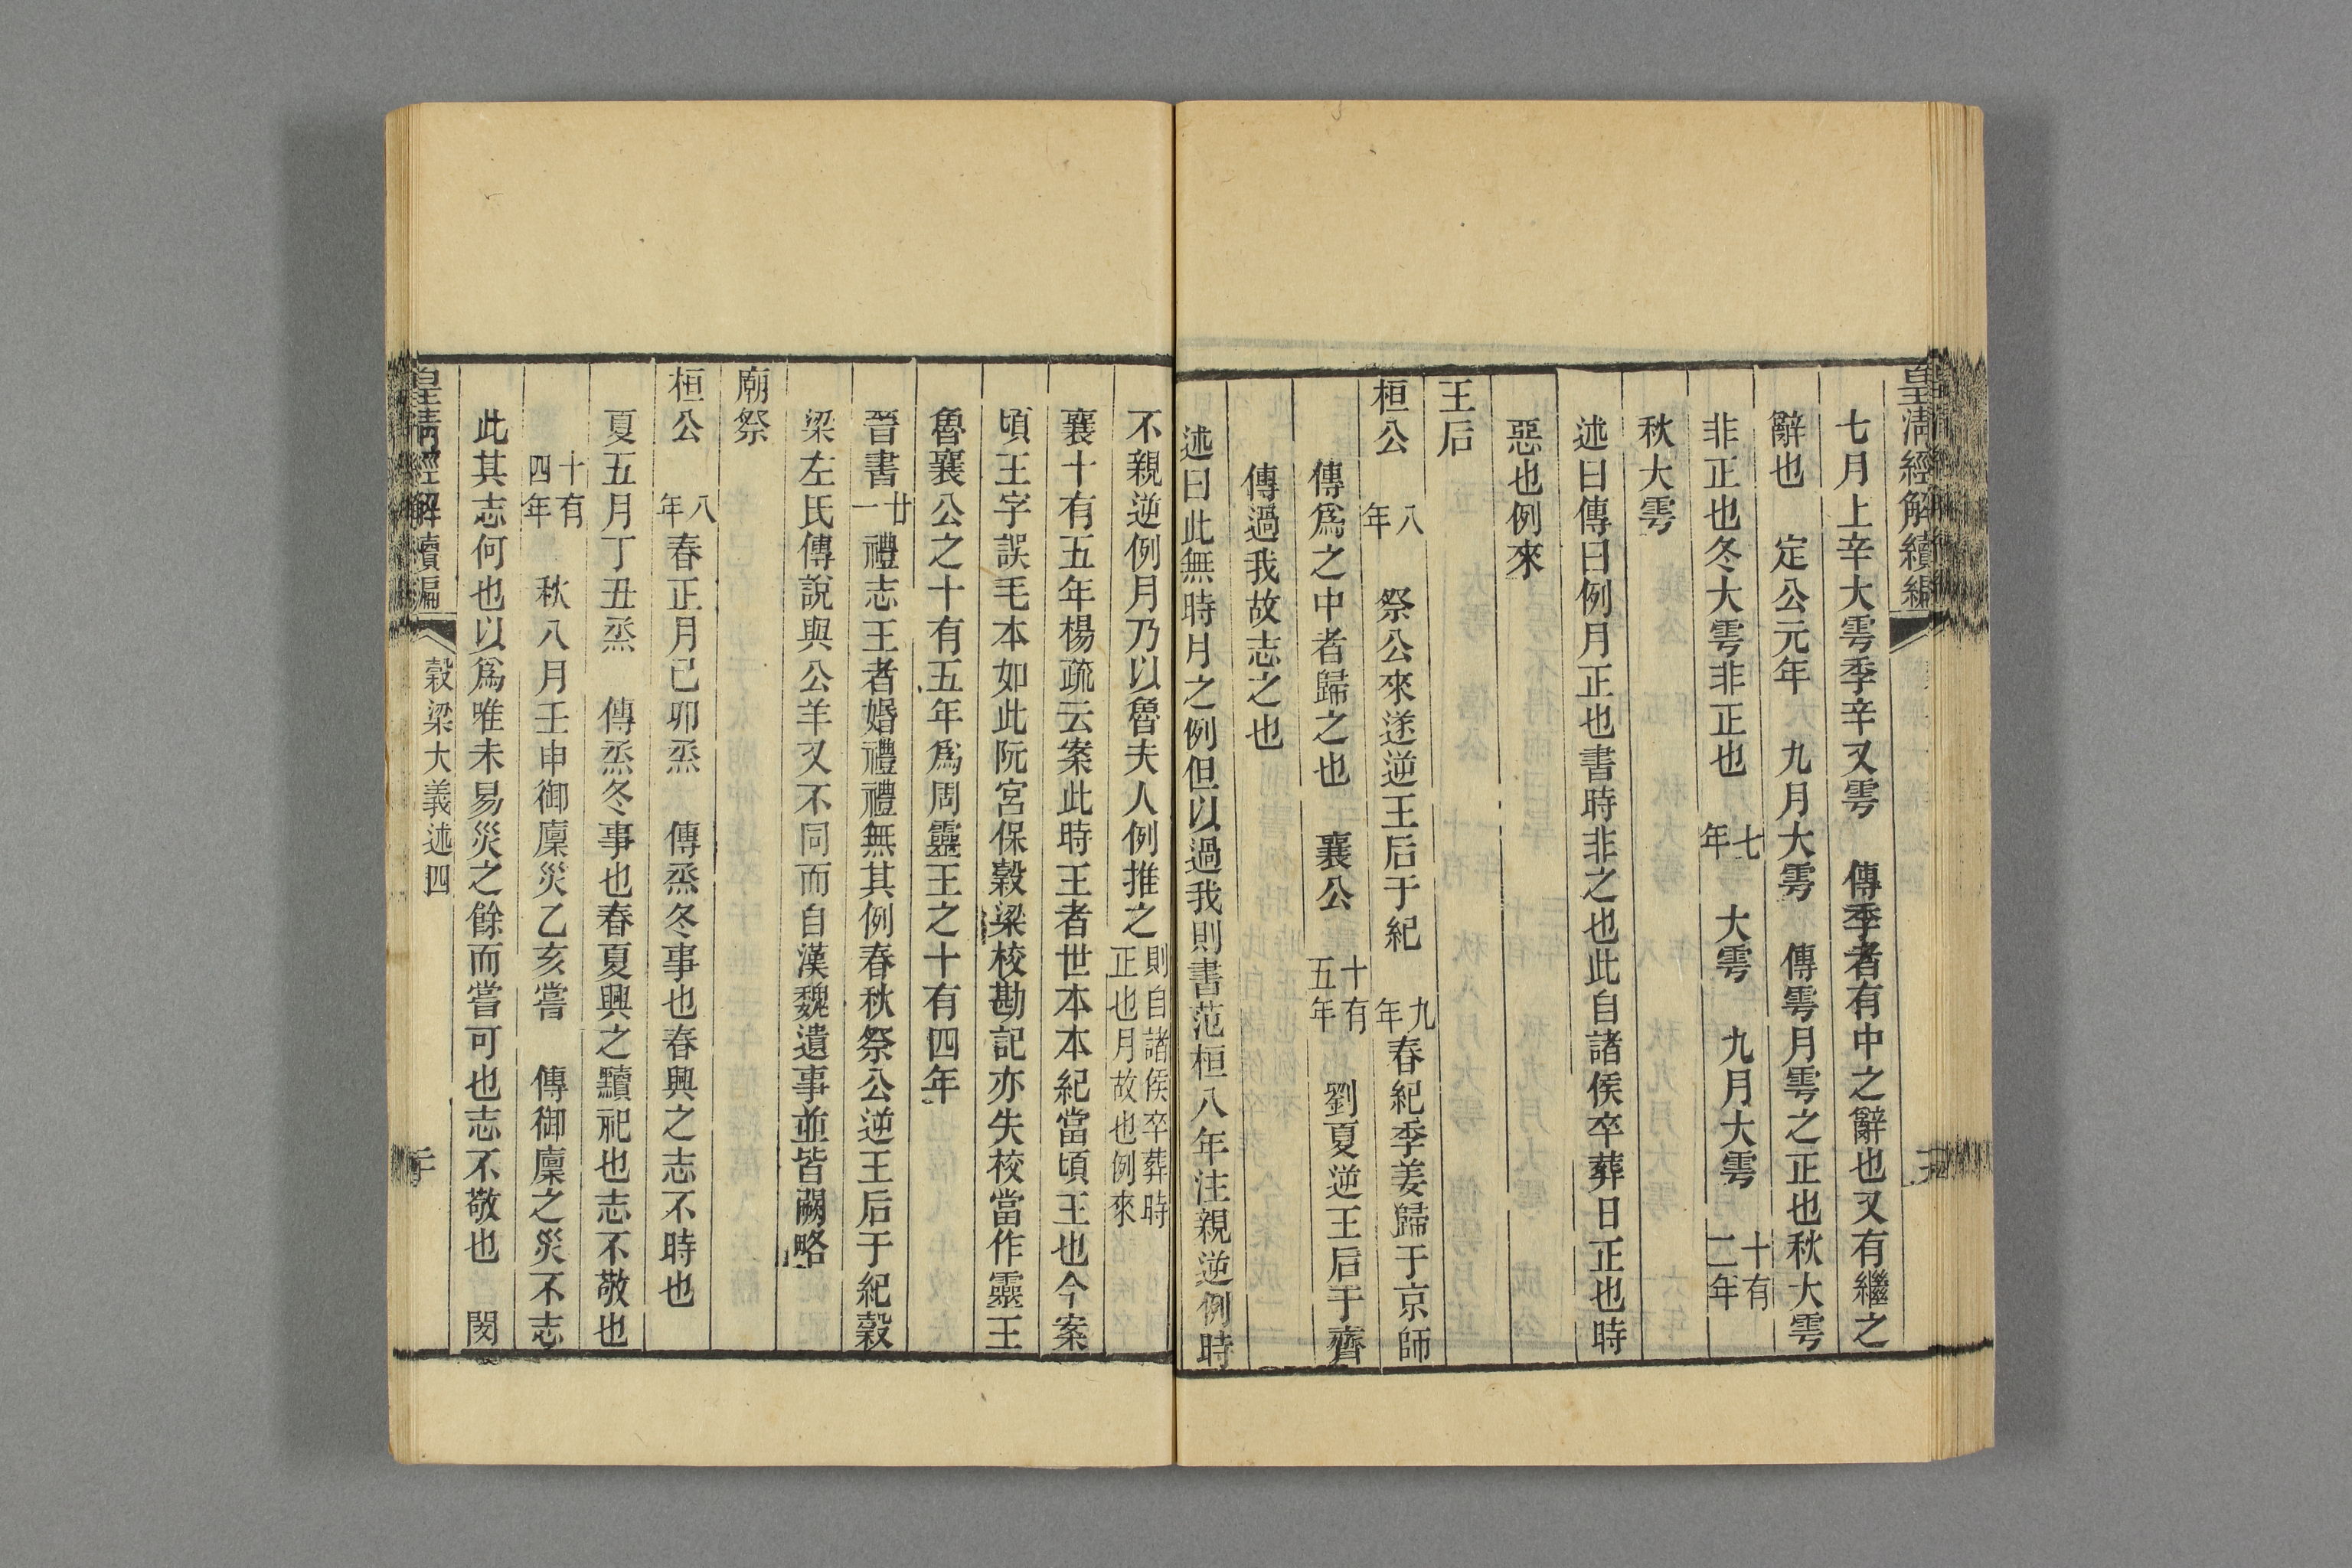 皇淸經解續編
七月上辛大雩季辛又雩　傳季者有中之辭也又有繼之
辭也　定公元年　九月大雩　傳雩月雩之正也秋大雩
非正也冬大雩非正也　七年　大雩　九月大雩　十有二年
秋大雩
述曰傳曰例月正也書時非之也此自諸侯卒葬日正也時
惡也例來
王后
桓公　八年　祭公來遂逆王后于紀　九年春紀季姜歸于京師
傳爲之中者歸之也　襄公　十有五年　劉夏逆王后于齊
傳過我故志之也
述曰此無時月之例但以過我則書范桓八年注親逆例時
不親逆例月乃以魯夫人例推之則自諸侯卒葬時正也月故也例來
襄十有五年楊疏云案此時王者世本本紀當頃王也今案
頃王字誤毛本如此阮宮保穀梁校勘記亦失校當作靈王
魯襄公之十有五年爲周靈王之十有四年
晉書廿一禮志王者婚禮禮無其例春秋祭公逆王后于紀穀
梁左氏傳說與公羊又不同而自漢魏遺事並皆闕略
廟祭
桓公　八年春正月己卯烝　傳烝冬事也春興之志不時也
夏五月丁丑烝　傳烝冬事也春夏興之黷祀也志不敬也
十有四年　秋八月壬申御廩災乙亥嘗　傳御廩之災不志
此其志何也以爲唯未易災之餘而嘗可也志不敬也　閔
皇淸經解續編
穀梁大義述四